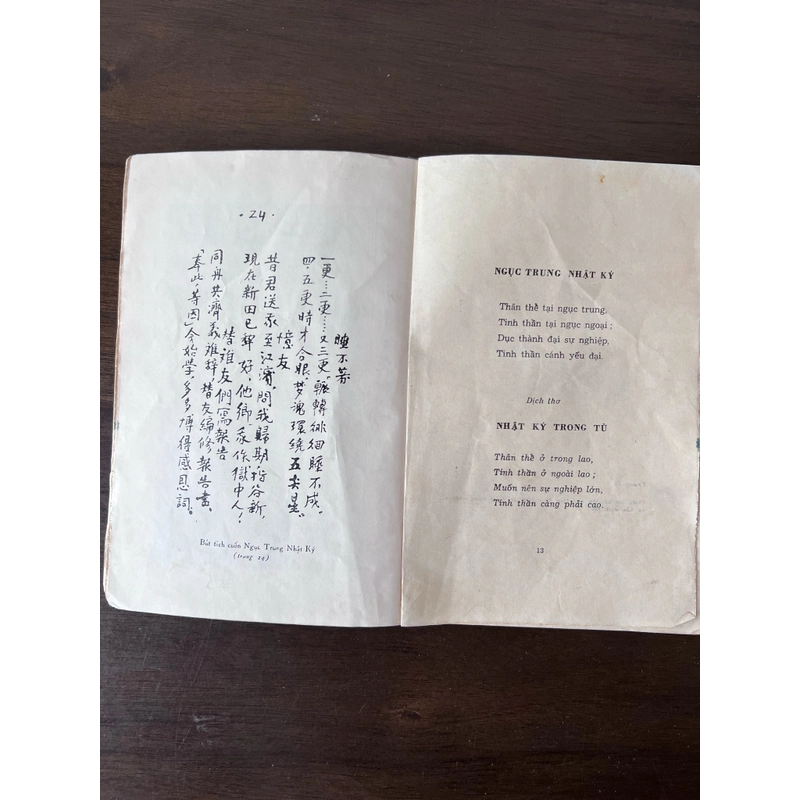 · 24 ·
睡不着
一更…二更……又三更,輾轉徘徊睡不成,
四,五更時才合眼,夢魂環繞五尖星。
憶友
昔君送我至江濱,問我歸期指谷新,
現在新田已犂好,他鄉我作獄中人!
替难友們寫報告
同舟共濟義难辭,替友編修報告書,
「奉此,等因」今始學,多多博得感恩詞。
Bút tích cuốn Ngục Trung Nhật Ký
(trang 24)
NGỤC TRUNG NHẬT KÝ
Thân thể tại ngục trung,
Tinh thần tại ngục ngoại ;
Dục thành đại sự nghiệp,
Tinh thần cánh yếu đại.
Dịch thơ
NHẬT KÝ TRONG TÙ
Thân thể ở trong lao,
Tinh thần ở ngoài lao ;
Muốn nên sự nghiệp lớn,
Tinh thần càng phải cao.
13